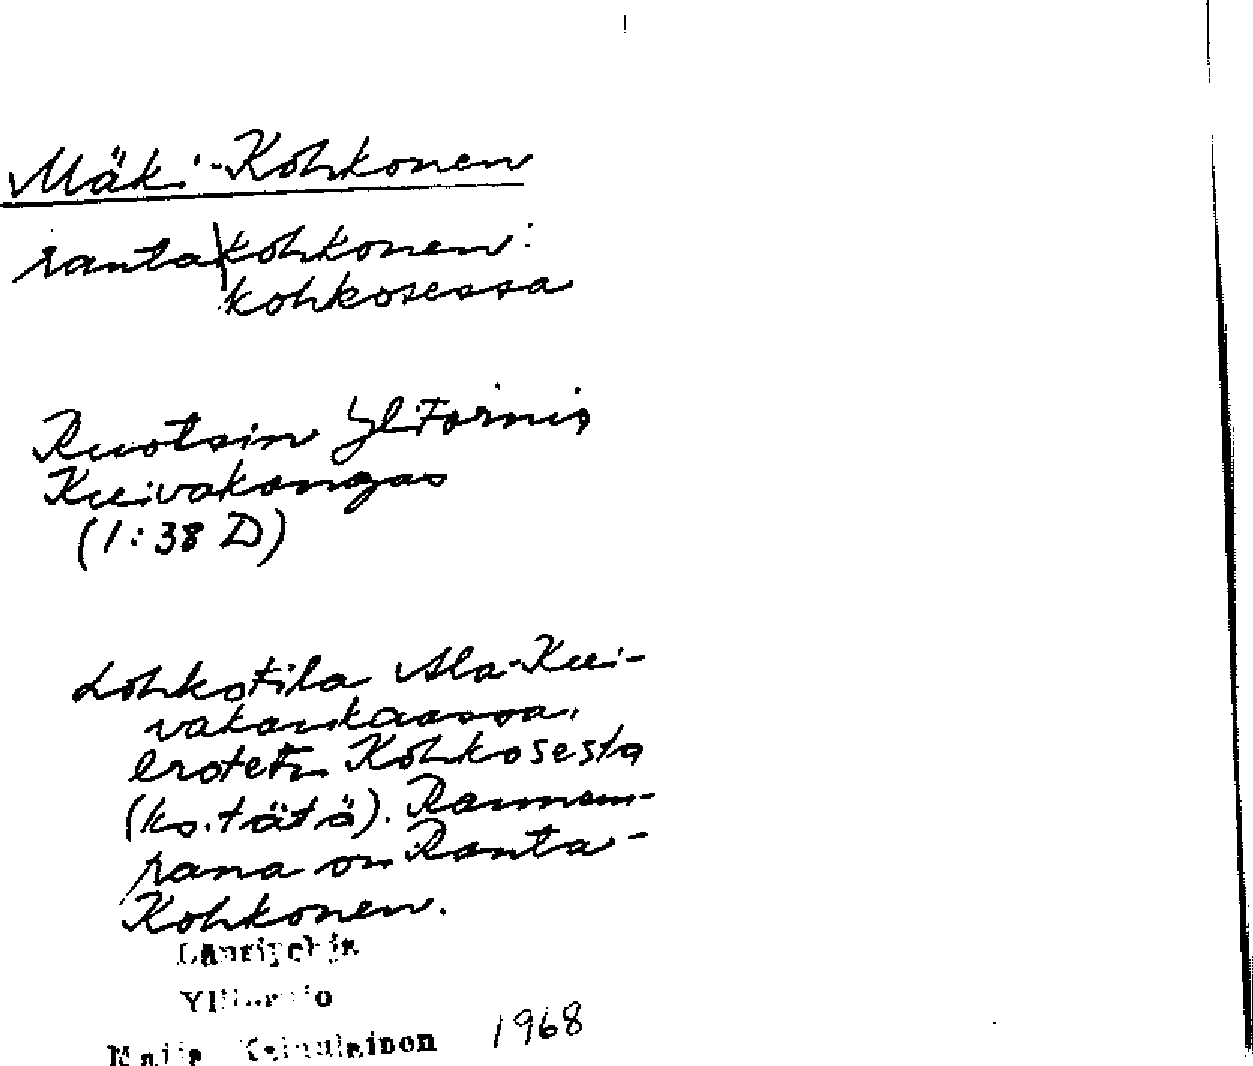 Mäki-Kohkonen
ranta|kohkonen:
kohkosessa
Ruotsin Ylitornio
Kuivakangas
(1:38 D)
Lohkotila Ala-Kui-
vakankaassa,
erotettu Kohkosesta
(ks. tätä).
rana on Ranta-
Kohkonen.
Länsipohja
Ylitornio
Maija 1968